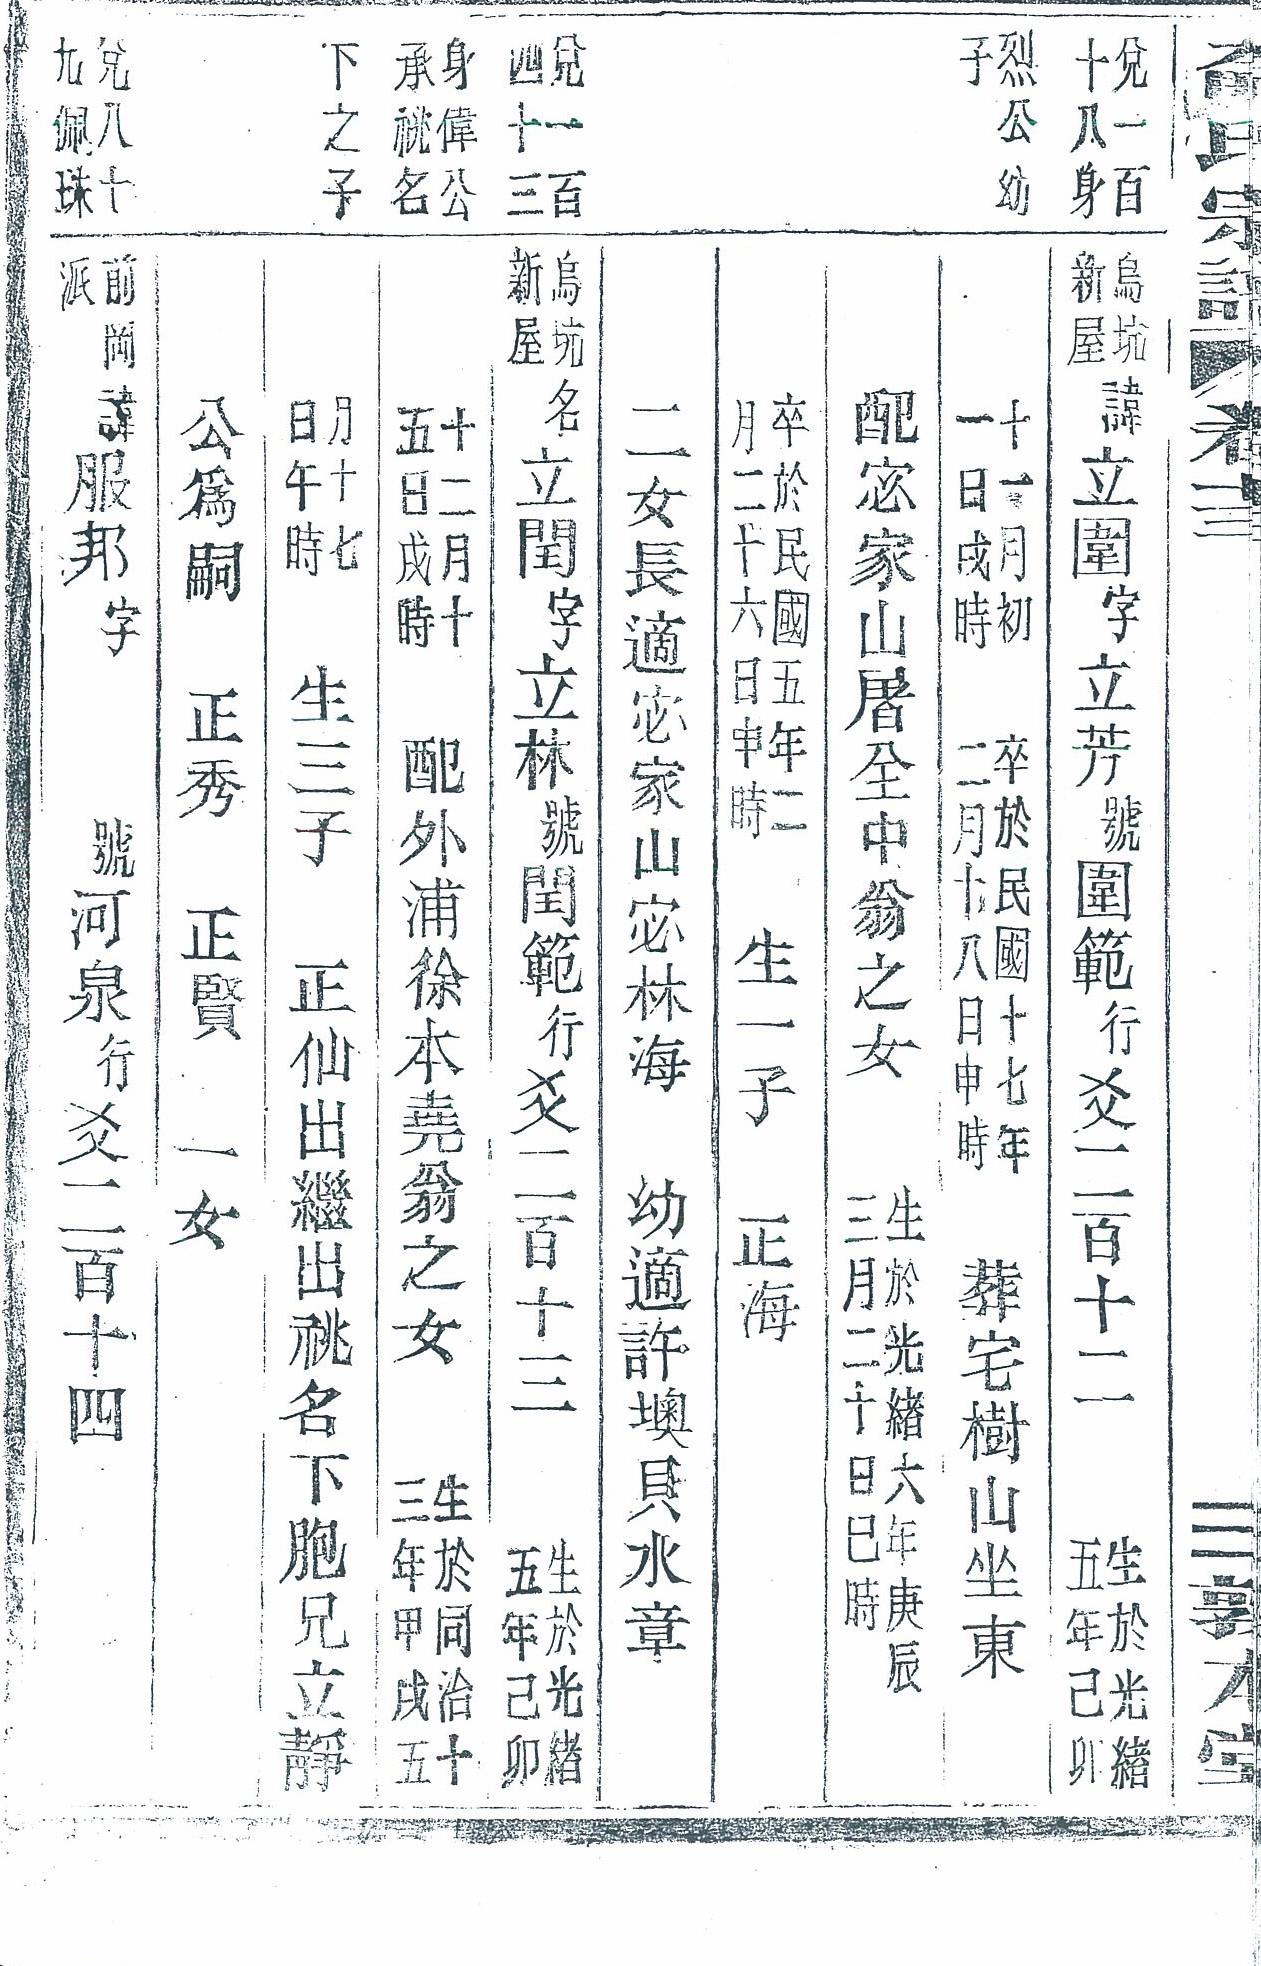 氏宗譜 卷三 三 敦本堂
兌一百
十八身
烈公幼
子
烏坑
新屋
諱立圍字立芳號圍範行爻二百十二
生於光緒
五年己卯
十一月初
一日戌時
卒於民國十七年
二月十八日申時
葬宅樹山坐東
配宓家山屠全中翁之女
生於光緒六年庚辰
三月二十日巳時
卒於民國五年二
月二十六日申時
生一子 正海
二女長適宓家山宓林海 幼適許墺貝水章
兌一百
四十三
身偉公
承祧名
下之子
烏坑
新屋
名立閏字立林號閏範行爻二百十三
生於光緒
五年己卯
十二月十
五日戌時
配外浦徐本堯翁之女
生於同治十
三年甲戌五
月十七
日午時
生三子 正仙出繼出祧名下胞兄立靜
公爲嗣 正秀 正賢 一女
兌八十
九佩珠
前岡
派
諱服邦字 號河泉行爻二百十四